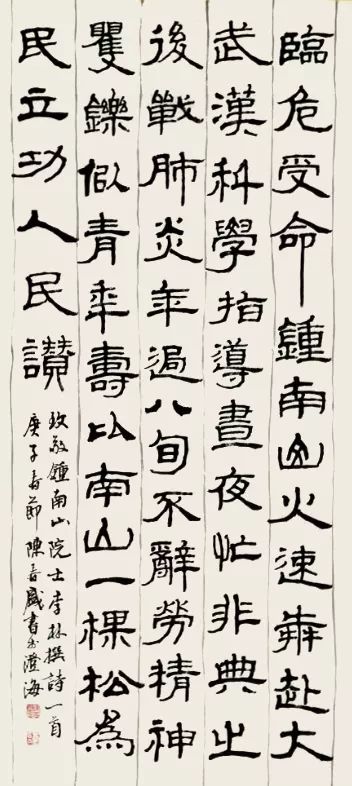 臨危受命鍾南山火速奔赴大
武漢科學指導晝夜忙非典之
後戰肺炎年過八旬不辭勞精神
矍鑠似青年壽比南山一棵松為
民立功人民讚
致敬鍾南山院士李林撰詩一首
庚子春節陳春盛書於澄海